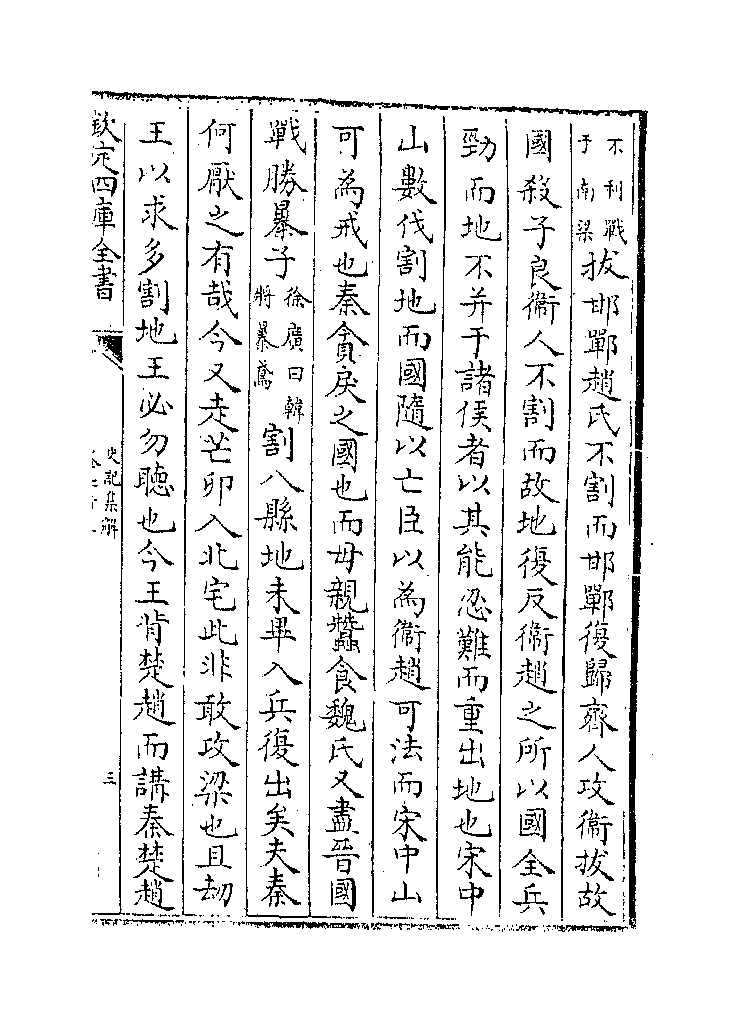 不利戰于南梁拔邯鄲趙氏不割而邯鄲復歸齊人攻衞拔故
國殺子良衞人不割而故地復反衞趙之所以國全兵
勁而地不并于諸侯者以其能忍難而重出地也宋中
山數伐割地而國隨以亡臣以為衞趙可法而宋中山
可為戒也秦貪戾之國也而毋親蠶食魏氏又盡晉國
戰勝暴子徐廣曰韓將暴鳶割八縣地未畢入兵復出矣夫秦
何厭之有哉今又走芒卯入北宅此非敢攻梁也且劫
王以求多割地王必勿聽也今王背楚趙而講秦楚趙
欽定四庫全書
史記集解
三